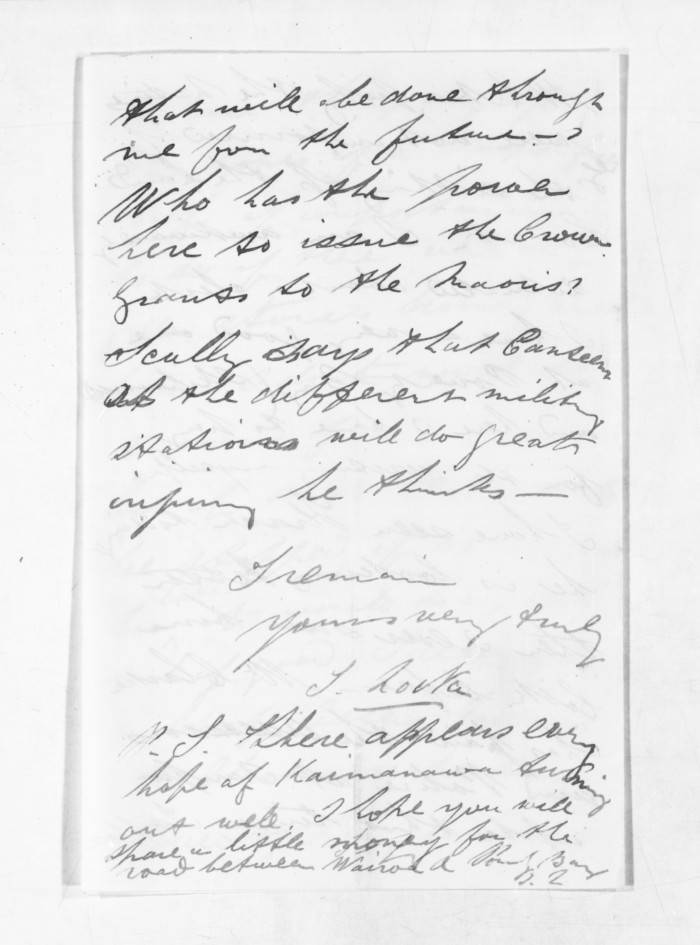 that will be done through
me for the future —?
Who has the power
here to issue the Crown
Grants to the Maoris?
Scully says that Canteens
at the different military
stations will do great
injury he thinks —
I remain
Yours very truly
S. Locke
P. S. There appears every
hope of Kaimanawa turning
out well. I hope you will
spare a little money for the
road between Wairoa & Poverty Bay